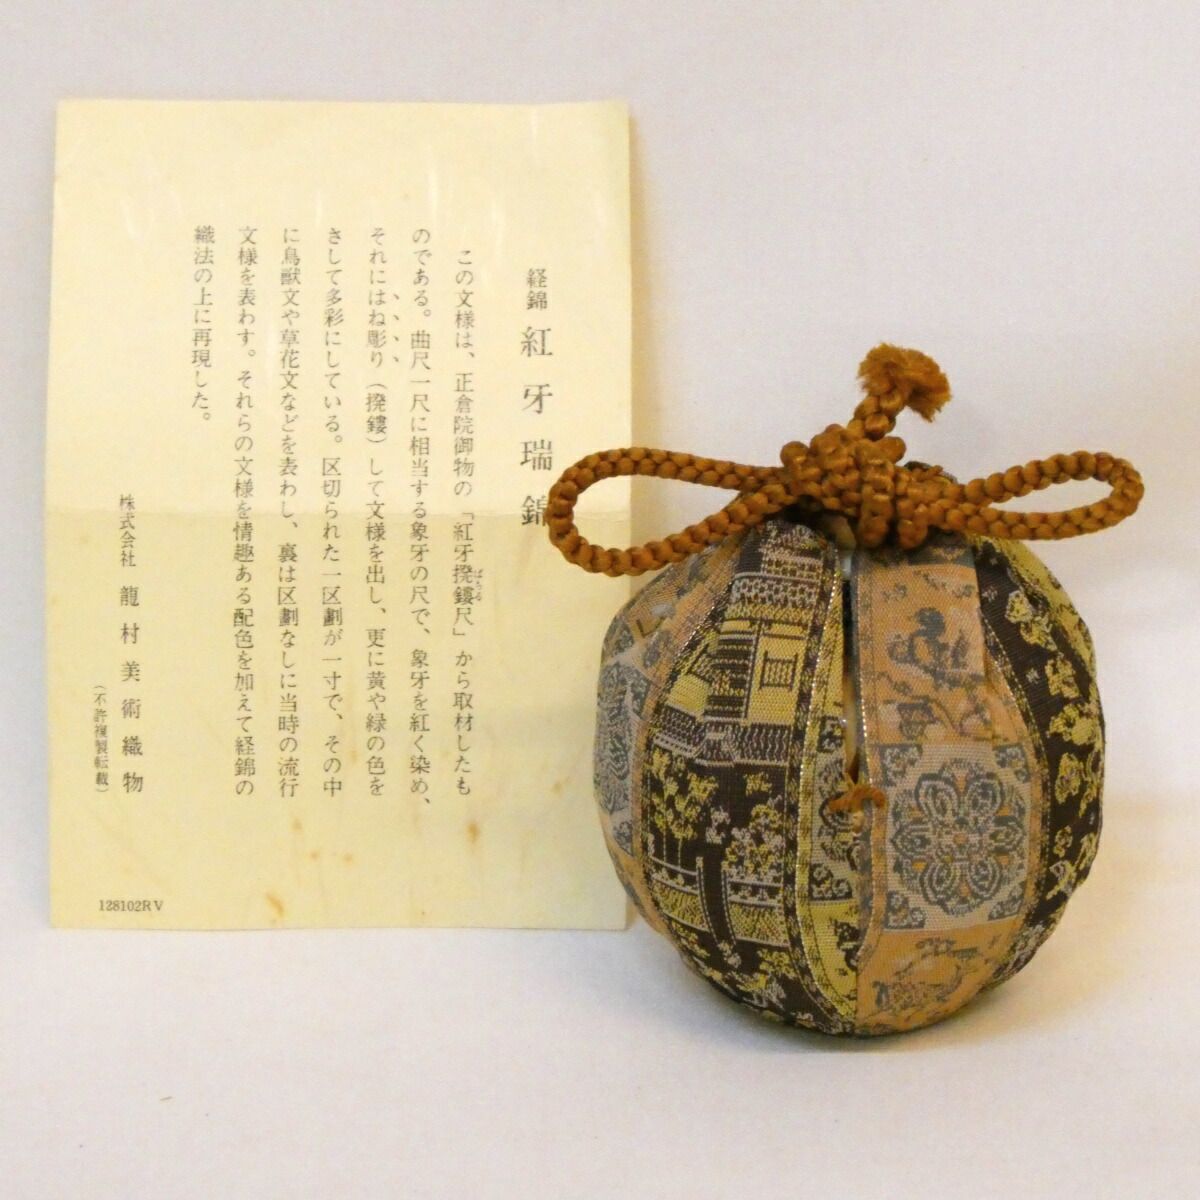 経錦 紅牙瑞錦
この文様は、正倉院御物の「紅牙撥鏤尺」から取材したも
ばちる
のである。曲尺一尺に相当する象牙の尺で、象牙を紅く染め、
それにはね彫り（撥鏤）して文様を出し、更に黄や緑の色を
さして多彩にしている。区切られた一区劃が一寸で、その中
に鳥獣文や草花文などを表わし、裏は区劃なしに当時の流行
文様を表わす。それらの文様を情趣ある配色を加えて経錦の
織法の上に再現した。
株式会社 龍村美術織物
（不許複製転載）
128102RV